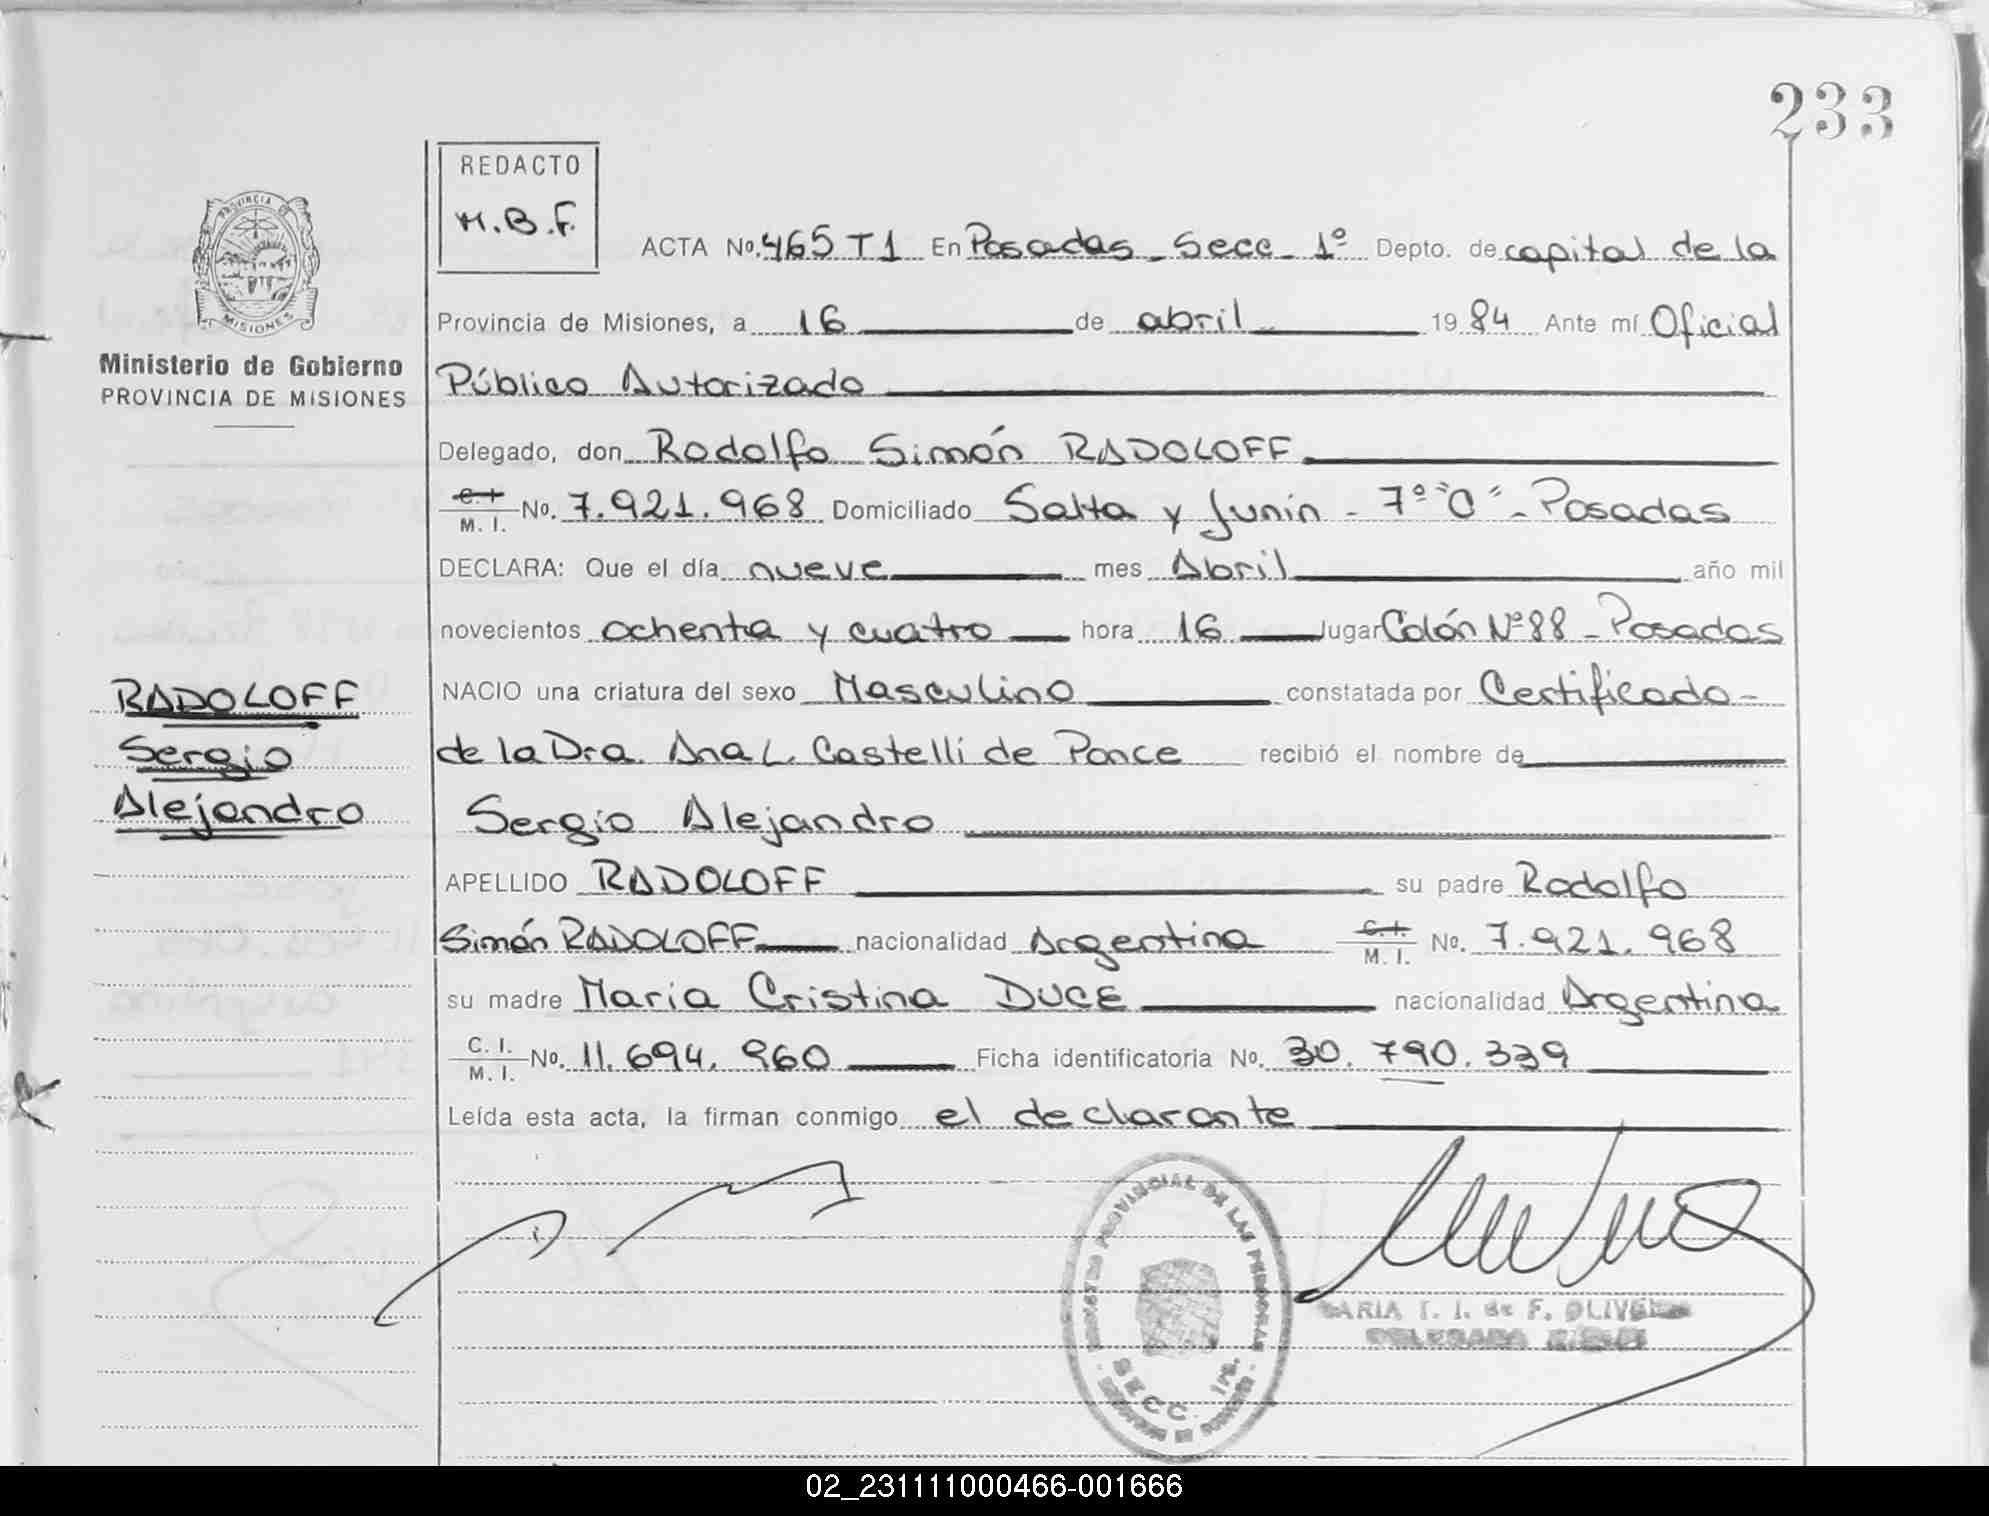 233
REDACTO
M.B.F.
PROVINCIA DE
MISIONES
Ministerio de Gobierno
PROVINCIA DE MISIONES
ACTA No. 465 T1 En Posadas - Secc - 1º Depto. de capital de la
Provincia de Misiones, a 16 de abril 1984 Ante mí Oficial
Público Autorizado
Delegado, don Rodolfo Simón RADOLOFF
C. I. M. I. No. 7.921.968 Domiciliado Salta y Junín - 7º "C" - Posadas
DECLARA: Que el día nueve mes Abril año mil
novecientos ochenta y cuatro hora 16 lugar Colón Nº 88 - Posadas
NACIO una criatura del sexo Masculino constatada por Certificado -
de la Dra. Ana L. Castelli de Ponce recibió el nombre de
Sergio Alejandro
APELLIDO RADOLOFF su padre Rodolfo
Simón RADOLOFF nacionalidad Argentina C. I. M. I. No. 7.921.968
su madre María Cristina DUCE nacionalidad Argentina
C. I. M. I. No. 11.694.960 Ficha identificatoria No. 30.790.339
Leída esta acta, la firman conmigo el declarante
RADOLOFF
Sergio
Alejandro
PROVINCIAL DE LAS PERSONAS
SECC. 1ra.
MARIA T. I. de F. OLIVEIRA
02_231111000466-001666